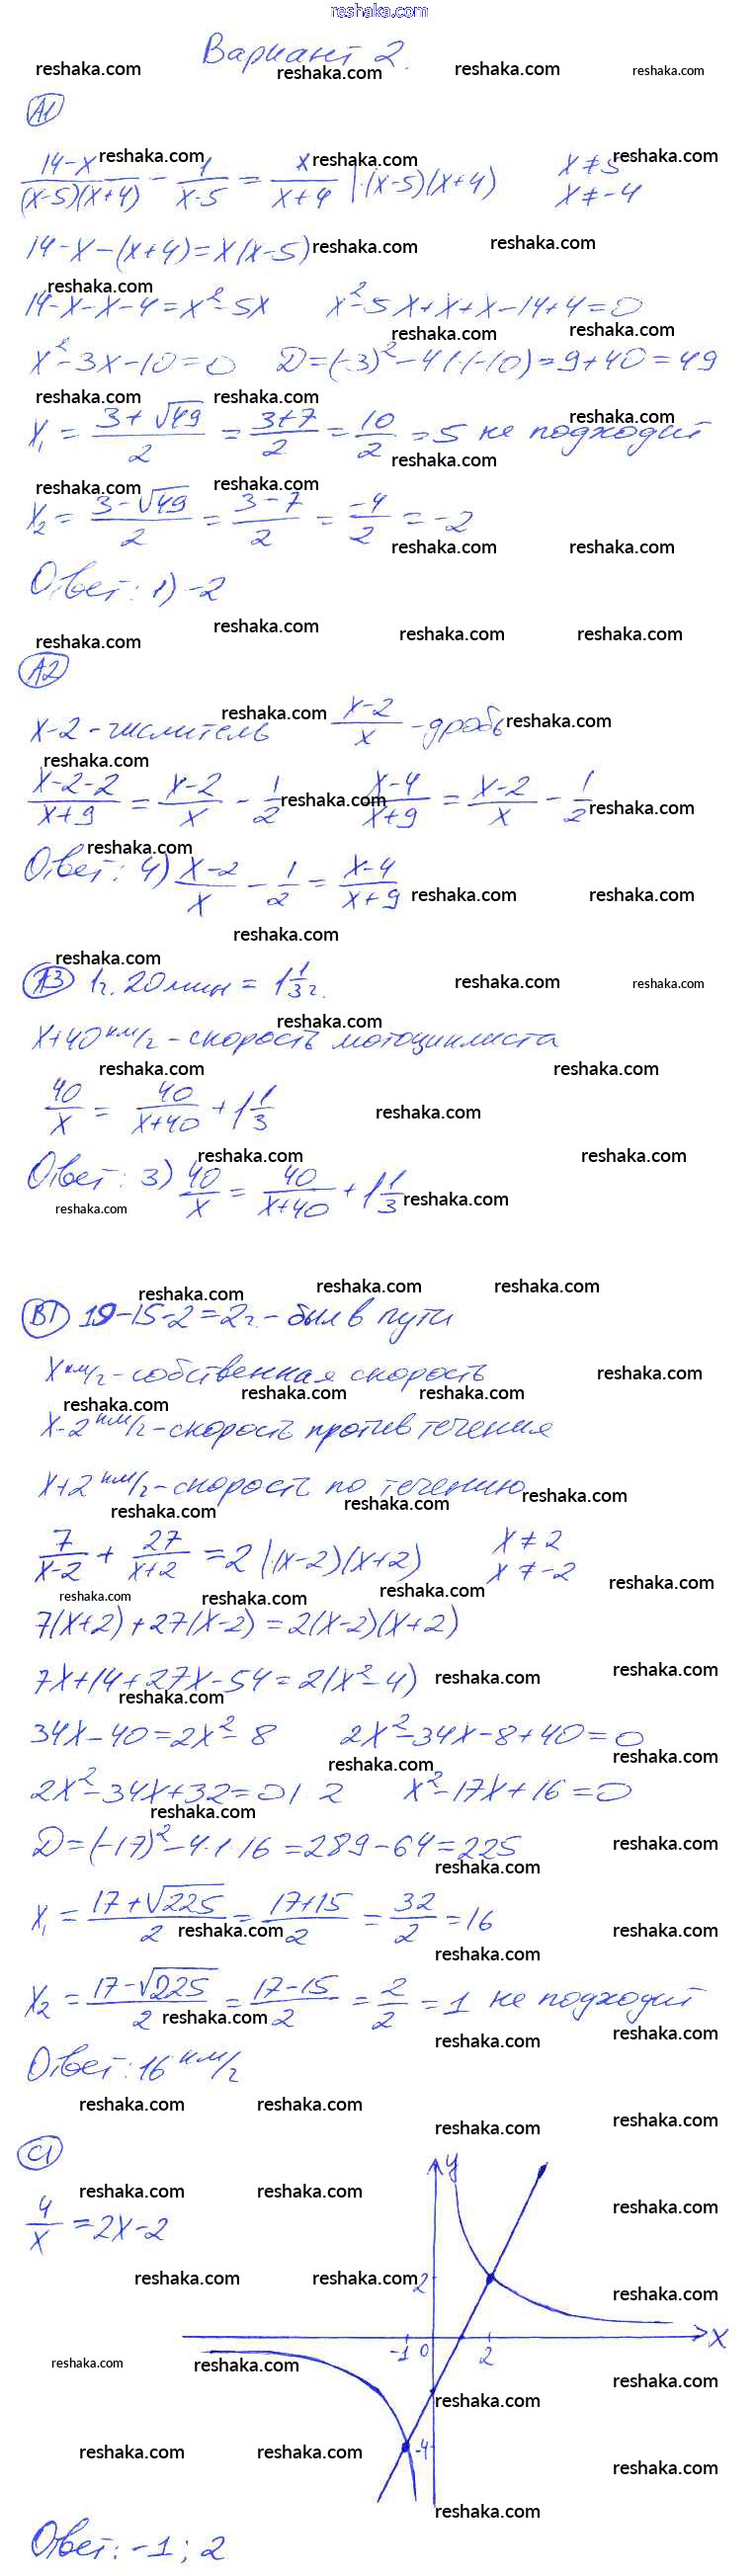 reshaka.com
Вариант 2.
А1
(14-x)/((x-5)(x+4)) - 1/(x-5) = x/(x+4) |·(x-5)(x+4) x≠5
x≠-4
14-x-(x+4)=x(x-5)
14-x-x-4=x²-5x x²-5x+x+x-14+4=0
x²-3x-10=0 D=(-3)²-4·(-10)=9+40=49
x₁ = (3+√49)/2 = (3+7)/2 = 10/2 = 5 не подходит
x₂ = (3-√49)/2 = (3-7)/2 = -4/2 = -2
Ответ: 1) -2
А2
x-2 - числитель (x-2)/x - дробь
(x-2-2)/(x+9) = (x-2)/x - 1/2 (x-4)/(x+9) = (x-2)/x - 1/2
Ответ: 4) (x-2)/x - 1/2 = (x-4)/(x+9)
А3 1ч. 20мин = 1 1/3 ч.
x+40 км/ч - скорость мотоциклиста
40/x = 40/(x+40) + 1 1/3
Ответ: 3) 40/x = 40/(x+40) + 1 1/3
В1 19-15-2=2ч. - был в пути
x км/ч - собственная скорость
x-2 км/ч - скорость против течения
x+2 км/ч - скорость по течению
7/(x-2) + 27/(x+2) = 2 |·(x-2)(x+2) x≠2
x≠-2
7(x+2)+27(x-2)=2(x-2)(x+2)
7x+14+27x-54=2(x²-4)
34x-40=2x²-8 2x²-34x-8+40=0
2x²-34x+32=0|:2 x²-17x+16=0
D=(-17)²-4·1·16=289-64=225
x₁ = (17+√225)/2 = (17+15)/2 = 32/2 = 16
x₂ = (17-√225)/2 = (17-15)/2 = 2/2 = 1 не подходит
Ответ: 16 км/ч
С1
4/x = 2x-2
y
2
-1 0 2 x
-4
Ответ: -1; 2